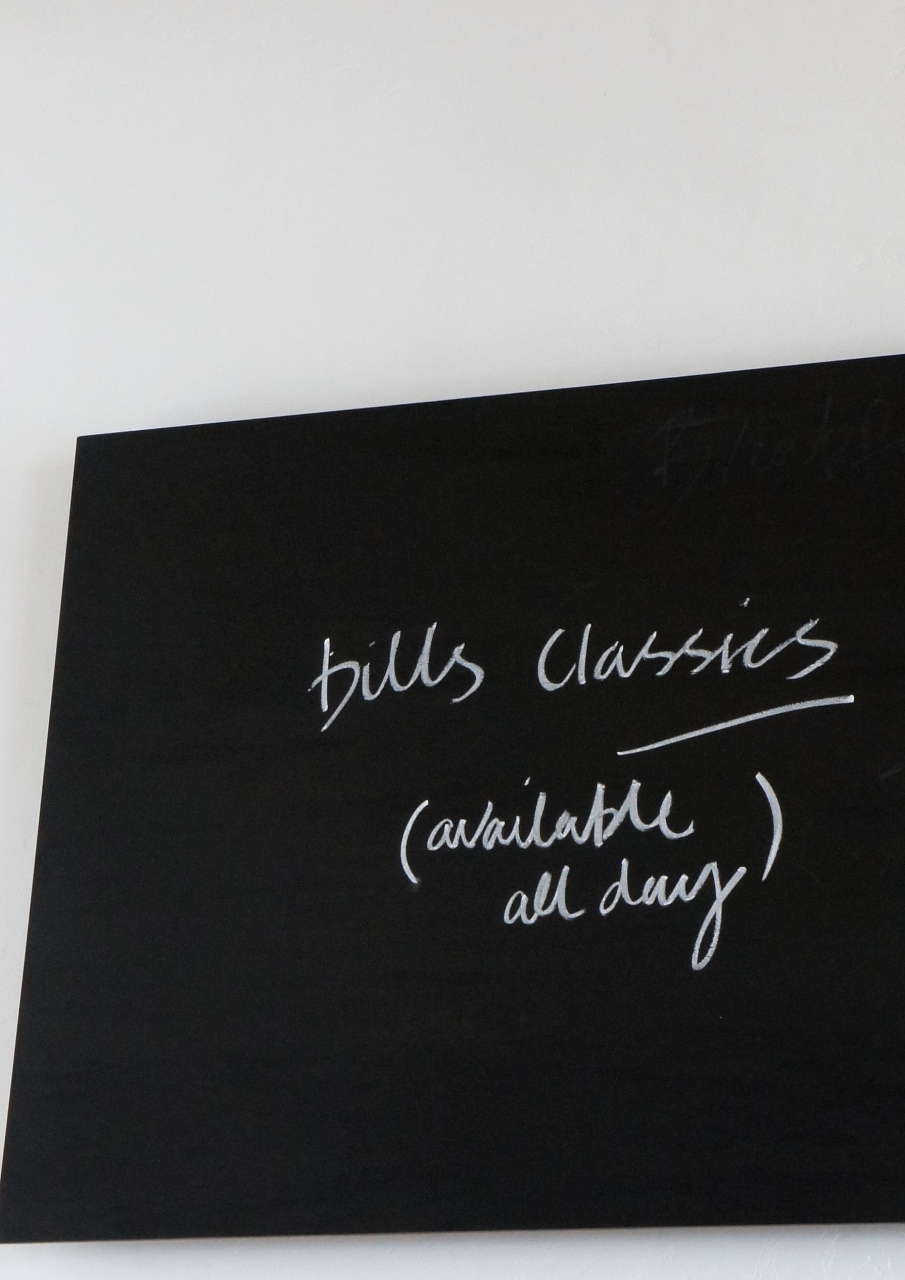 bills classics
(available
all day)